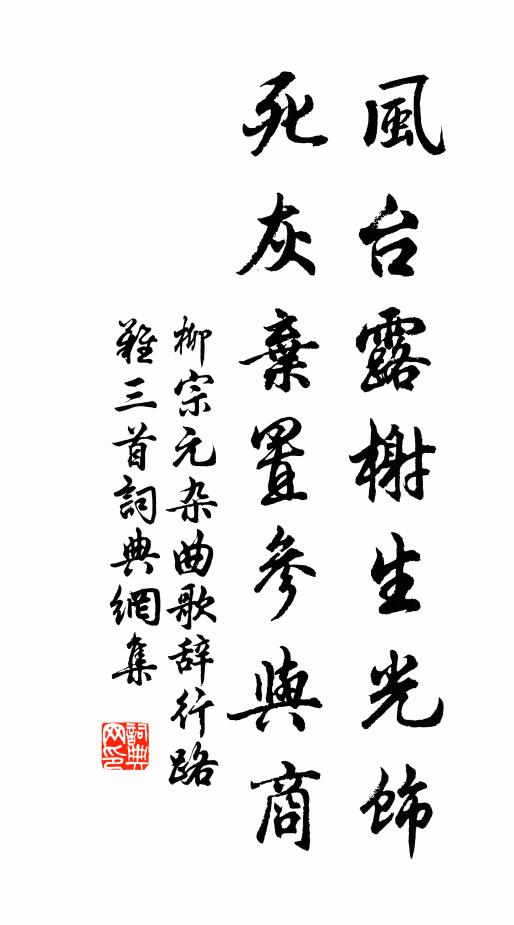 風台露榭生光飾
死灰棄置參與商
柳宗元杂曲歌辞行路
難三首詞典網集
詞典网印